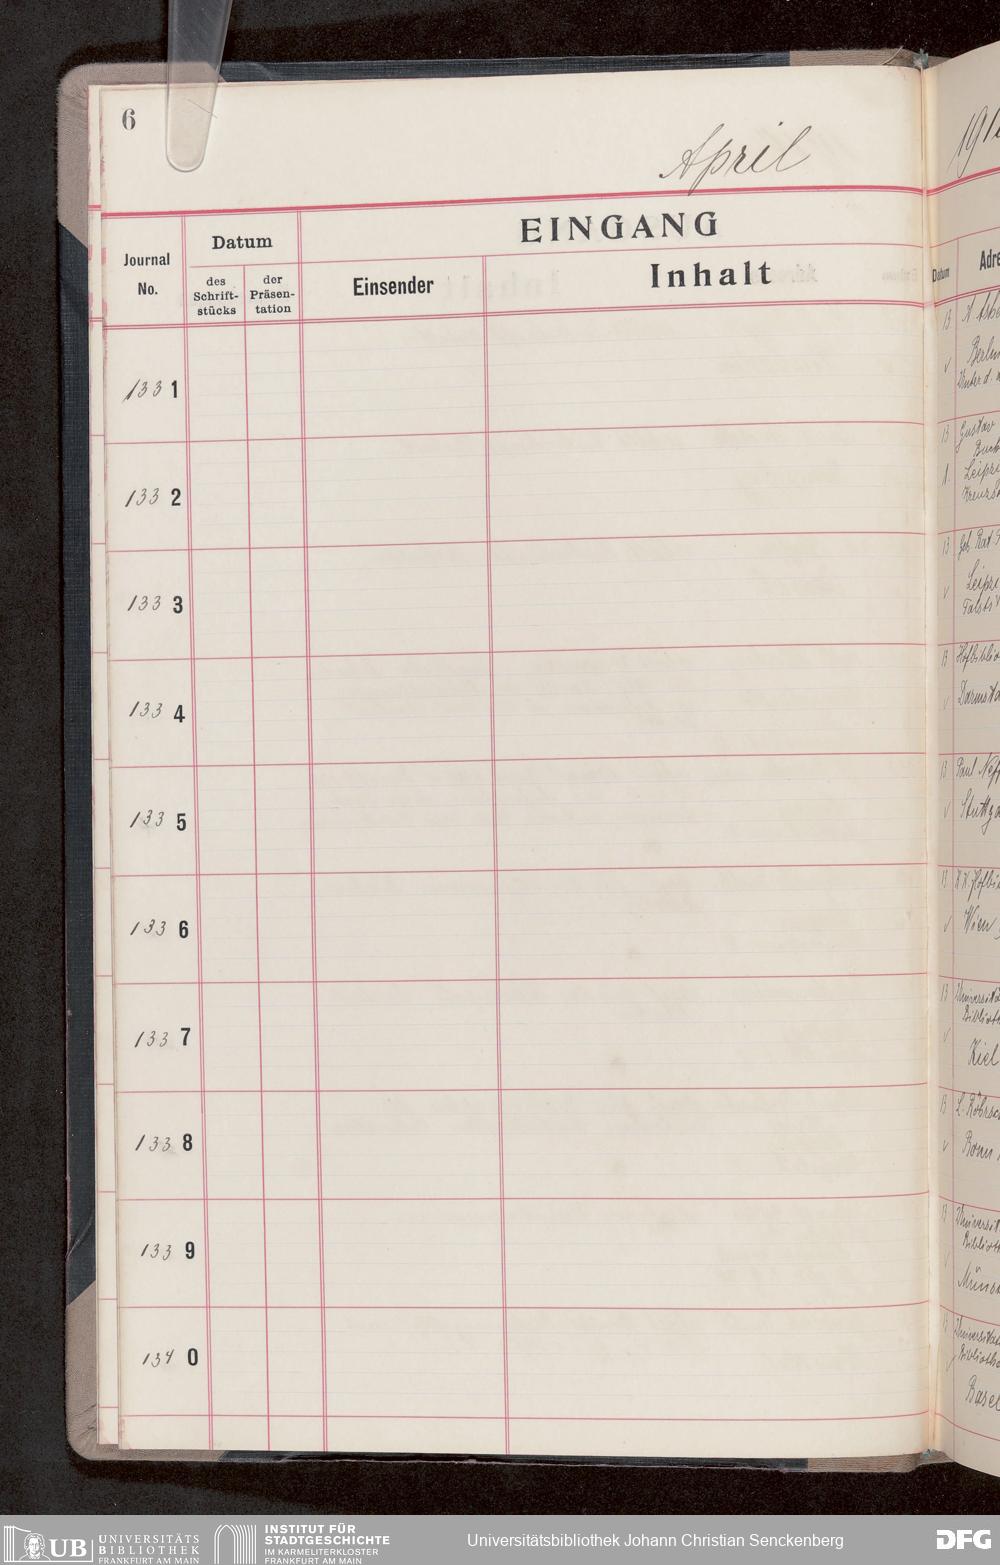 6
April
EINGANG
Journal No.
Datum
des Schrift-stücks
der Präsen-tation
Einsender
Inhalt
1331
1332
1333
1334
1335
1336
1337
1338
1339
1340
191
Datum
Adre
13
Berlin
13 Gustav
Buch
Leipzi
13 Geh. Rat
Leipzi
13 Hofbiblio
Darmsta
13 Paul Neff
Stuttga
13 K. K. Hofbi
Wien
13 Universitä
Biblioth
Kiel
13 L. Röhrsc
Bonn
13 Universit
Biblioth
Münst
13 Universitäts
Bibliothe
Basel
UB UNIVERSITÄTS
BIBLIOTHEK
FRANKFURT AM MAIN
INSTITUT FÜR
STADTGESCHICHTE
IM KARMELITERKLOSTER
FRANKFURT AM MAIN
Universitätsbibliothek Johann Christian Senckenberg
DFG